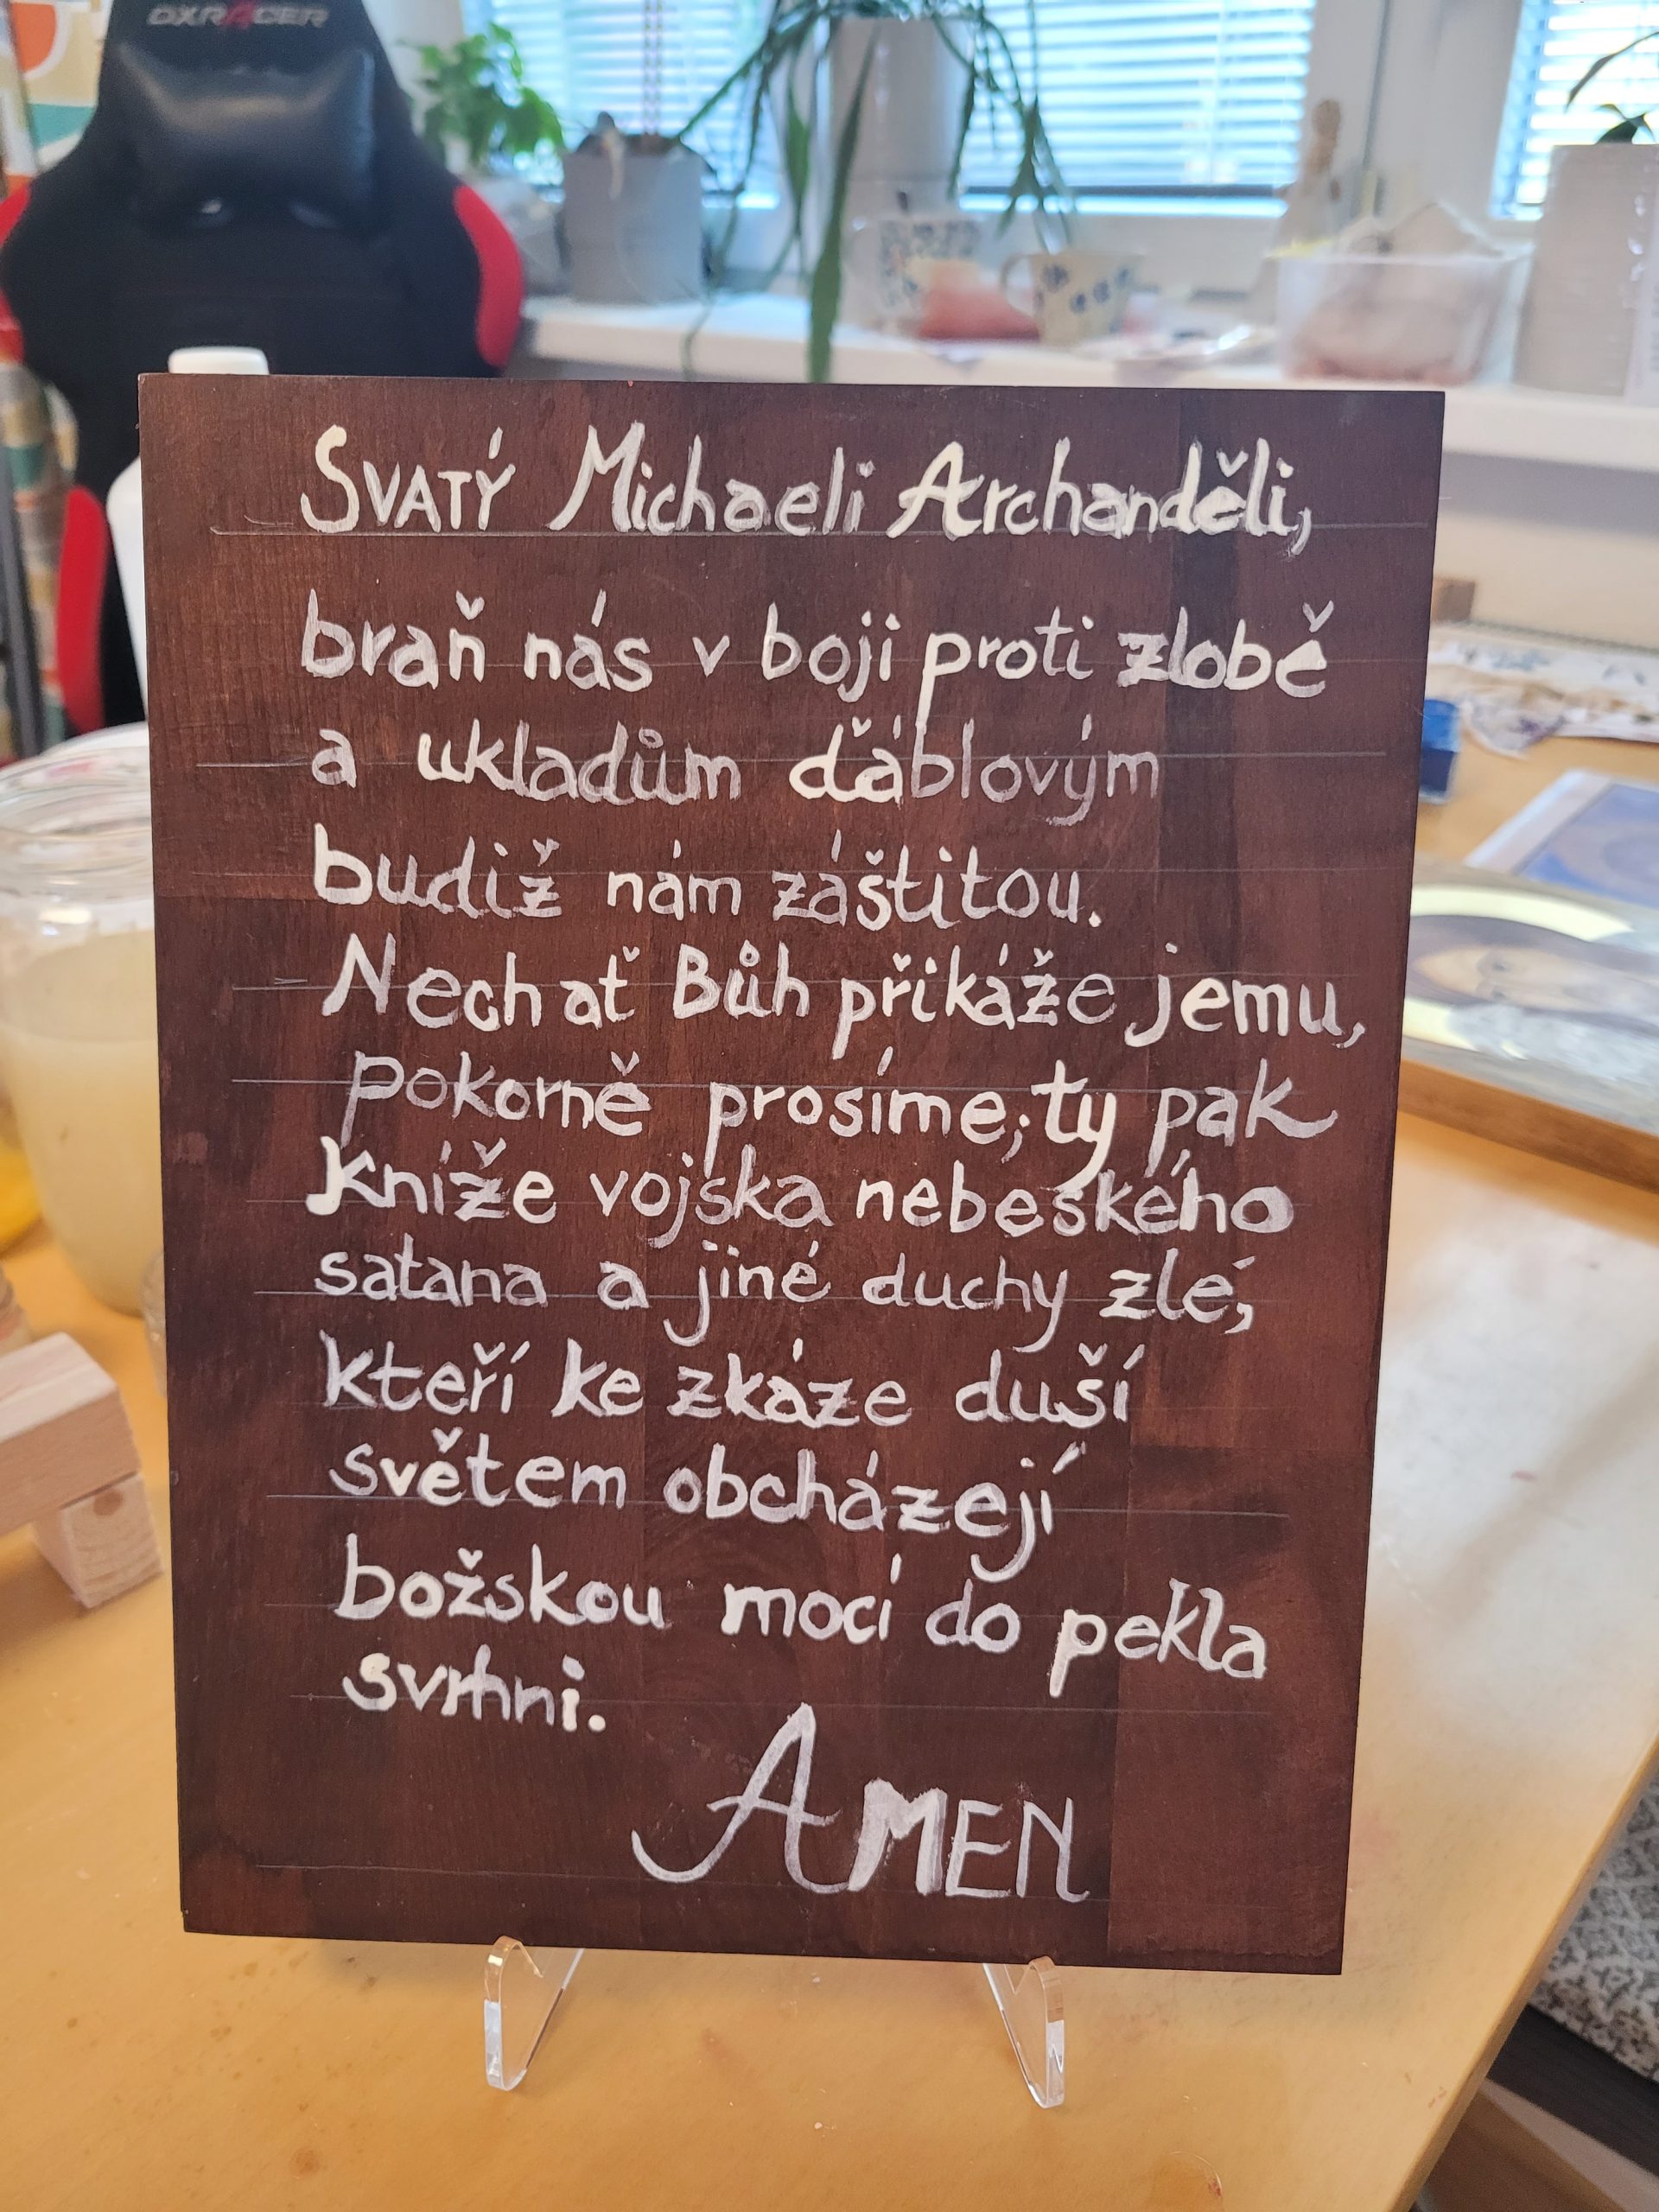 DXRACER
SVATÝ Michaeli Archanděli,
braň nás v boji proti zlobě
a ukladům ďáblovým
budiž nám záštitou.
Nechať Bůh přikáže jemu,
pokorně prosíme; ty pak
kníže vojska nebeského
satana a jiné duchy zlé,
kteří ke zkáze duší
světem obcházejí
božskou mocí do pekla
svrhni.
AMEN